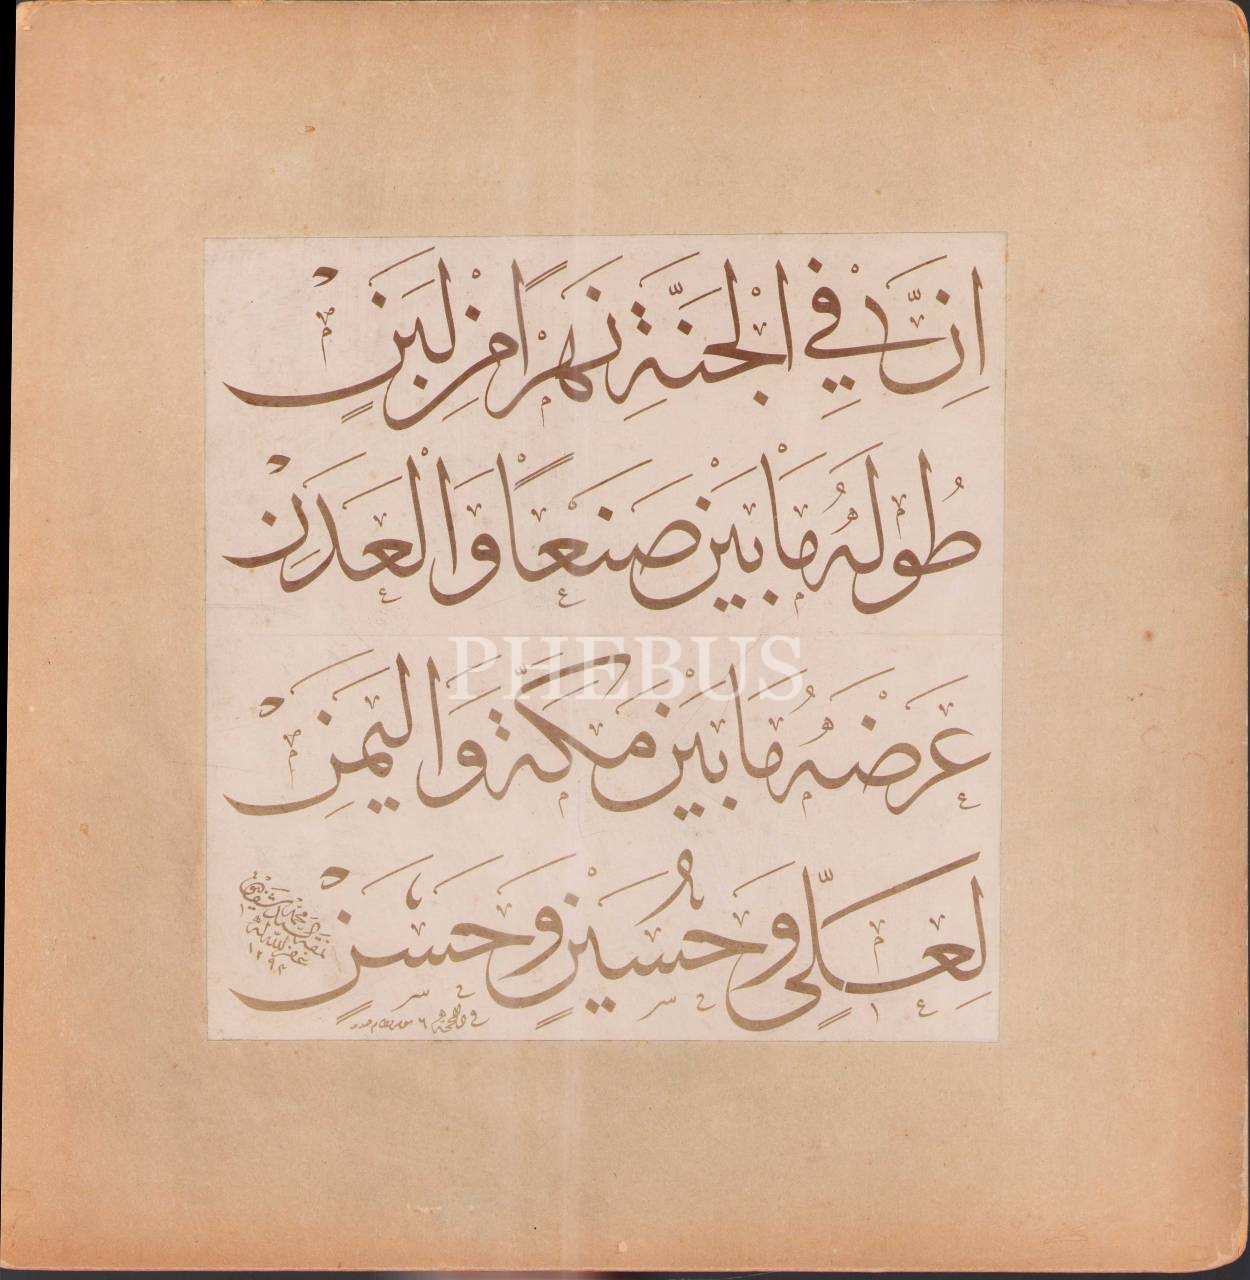 اِنَّ فِي الْجَنَّةِ نَهْرًا مِنْ لَبَنٍ
طُولُهُ مَا بَيْنَ صَنْعًا وَالْعَدَنِ
PHEBUS
عَرْضُهُ مَا بَيْنَ مَكَّةَ وَالْيَمَنِ
لِعَلِيٍّ وَحُسَيْنٍ وَحَسَنٍ